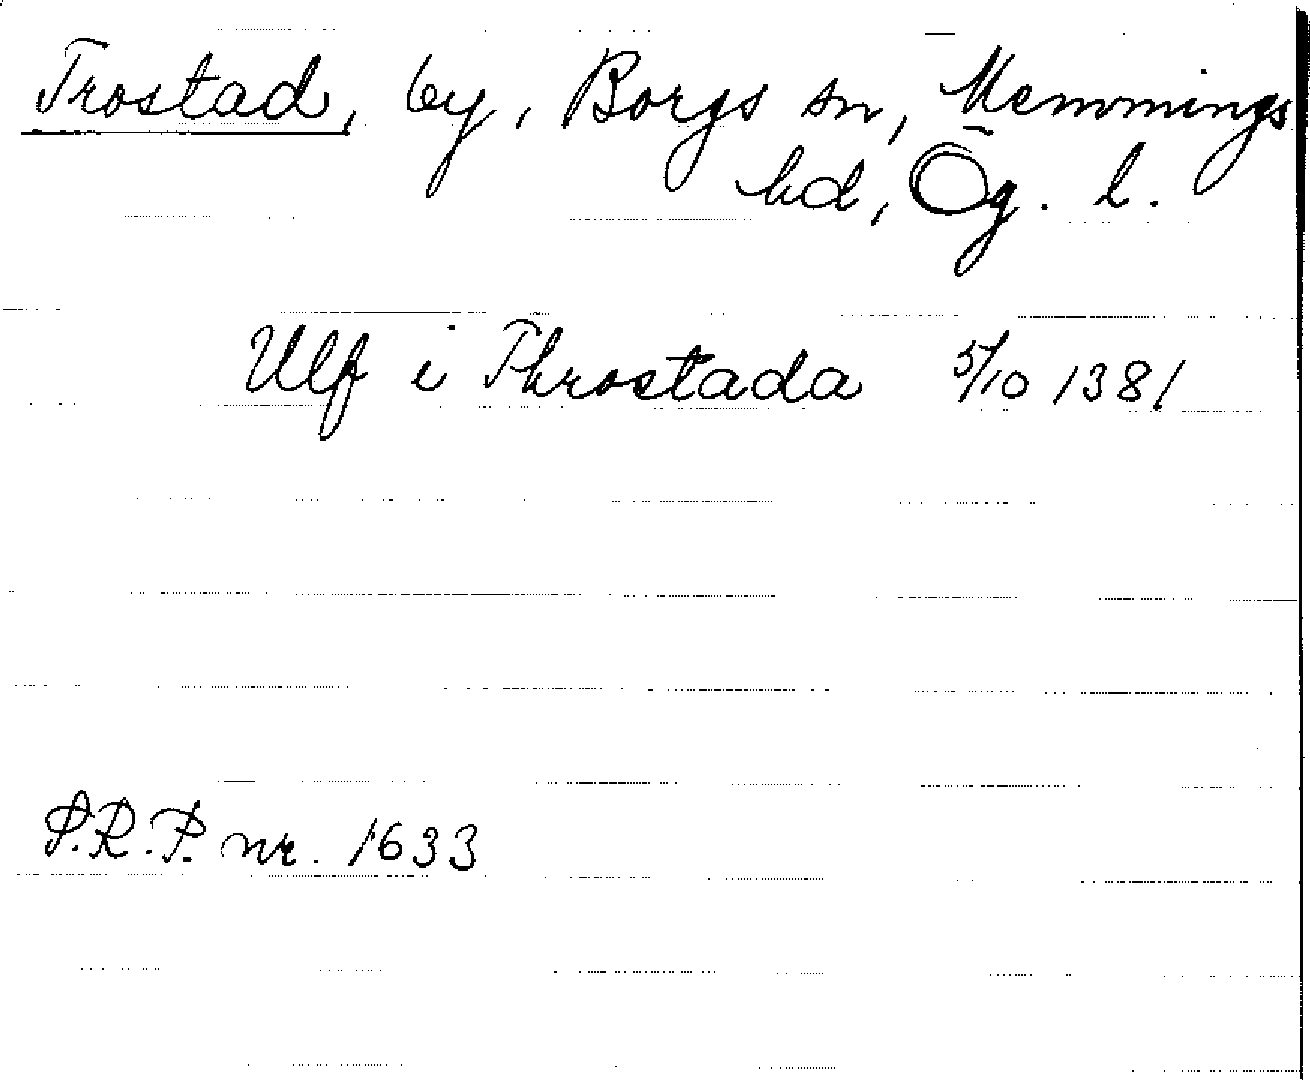 Trostad, by, Borgs sn, Memmings
hd, Ög. l.
Ulf i Throstada 5/10 1381
S.R.P. nr. 1633